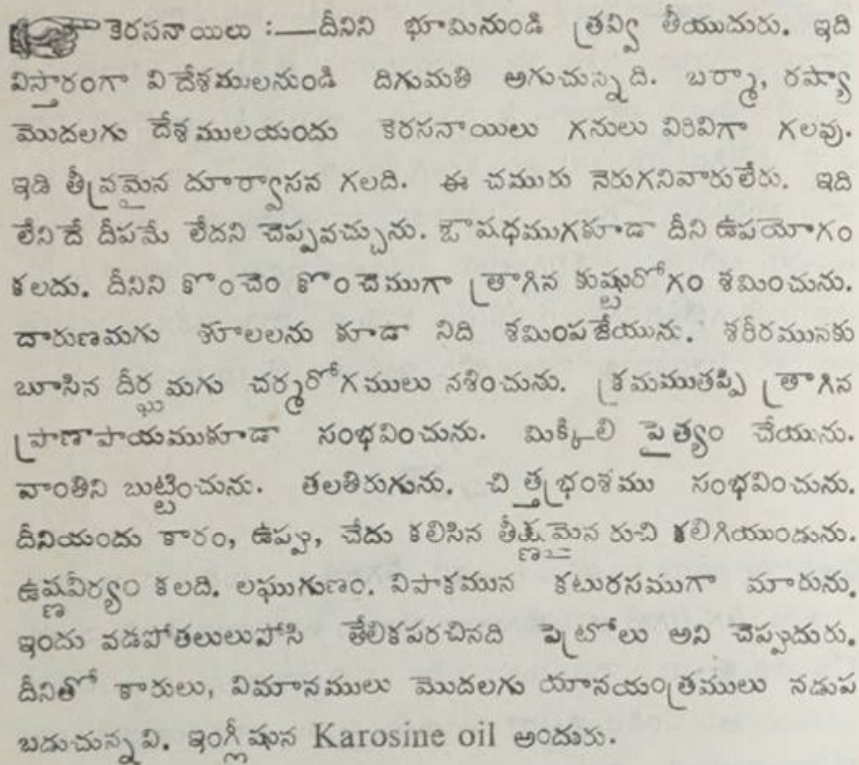 కెరసనాయిలు :—దీనిని భూమినుండి త్రవ్వి తీయుదురు. ఇది
విస్తారంగా విదేశములనుండి దిగుమతి అగుచున్నది. బర్మా, రష్యా
మొదలగు దేశములయందు కెరసనాయిలు గనులు విరివిగా గలవు.
ఇడి తీవ్రమైన దూర్వాసన గలది. ఈ చమురు నెరుగనివారులేరు. ఇది
లేనిదే దీపమే లేదని చెప్పవచ్చును. ఔషధముగకూడా దీని ఉపయోగం
కలదు. దీనిని కొంచెం కొంచెముగా త్రాగిన కుష్టురోగం శమించును.
దారుణమగు శూలలను కూడా నిది శమింపజేయును. శరీరమునకు
బూసిన దీర్ఘమగు చర్మరోగములు నశించును. క్రమముతప్పి త్రాగిన
ప్రాణాపాయముకూడా సంభవించును. మిక్కిలి పైత్యం చేయును.
వాంతిని బుట్టించును. తలతిరుగును. చిత్తభ్రంశము సంభవించును.
దీనియందు కారం, ఉప్పు, చేదు కలిసిన తీక్ష్ణమైన రుచి కలిగియుండును.
ఉష్ణవీర్యం కలది. లఘుగుణం. విపాకమున కటురసముగా మారును.
ఇందు వడపోతలులుపోసి తేలికపరచినది పెట్రోలు అని చెప్పుదురు.
దీనితో కారులు, విమానములు మొదలగు యానయంత్రములు నడుప
బడుచున్నవి. ఇంగ్లీషున Karosine oil అందురు.